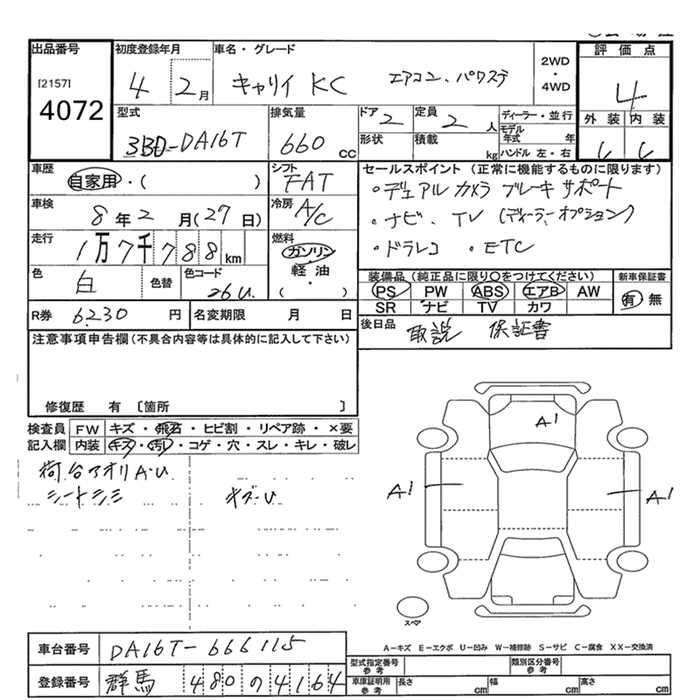 出品番号
[2157]
4072
初度登録年月
4 2月
車名・グレード
キャリイ KC エアコン、パワステ
2WD
・
4WD
評価点
4
外装 内装
型式
3BD-DA16T
排気量
660 cc
ドア 2
形状
定員 2 人
積載 kg
ディーラー・並行
モデル年式 年
ハンドル 左・右
車歴
自家用・( )
シフト
FAT
車検
8年2月(27日)
冷房
A/C
走行
1万7千788km
燃料
ガソリン
軽油・
( )
色
白
色替
色コード
26U
R券 6230円
名変期限 月 日
セールスポイント(正常に機能するものに限ります)
・デュアルカメラブレーキサポート
・ナビ、TV(ディーラーオプション)
・ドラレコ ・ETC
装備品(純正品に限り〇をつけてください)
PS PW ABS エアB AW
SR ナビ TV カワ
新車保証書
有・無
後日品 取説 保証書
注意事項申告欄(不具合内容等は具体的に記入して下さい)
修復歴 有 〔箇所 〕
検査員記入欄
FW キズ・飛石・ヒビ割・リペア跡・×要
内装 キズ・汚れ・コゲ・穴・スレ・キレ・破レ
荷台アオリA・U
シートシミ キズU
A1
A1
A1
スペア
A−キズ E−エクボ U−凹み W−補修跡 S−サビ C−腐食 XX−交換済
車台番号 DA16T-666115
登録番号 群馬 480 の 4164
型式指定番号 参考
類別区分番号 参考
車庫証明用 参考
長さ cm
幅 cm
高さ cm